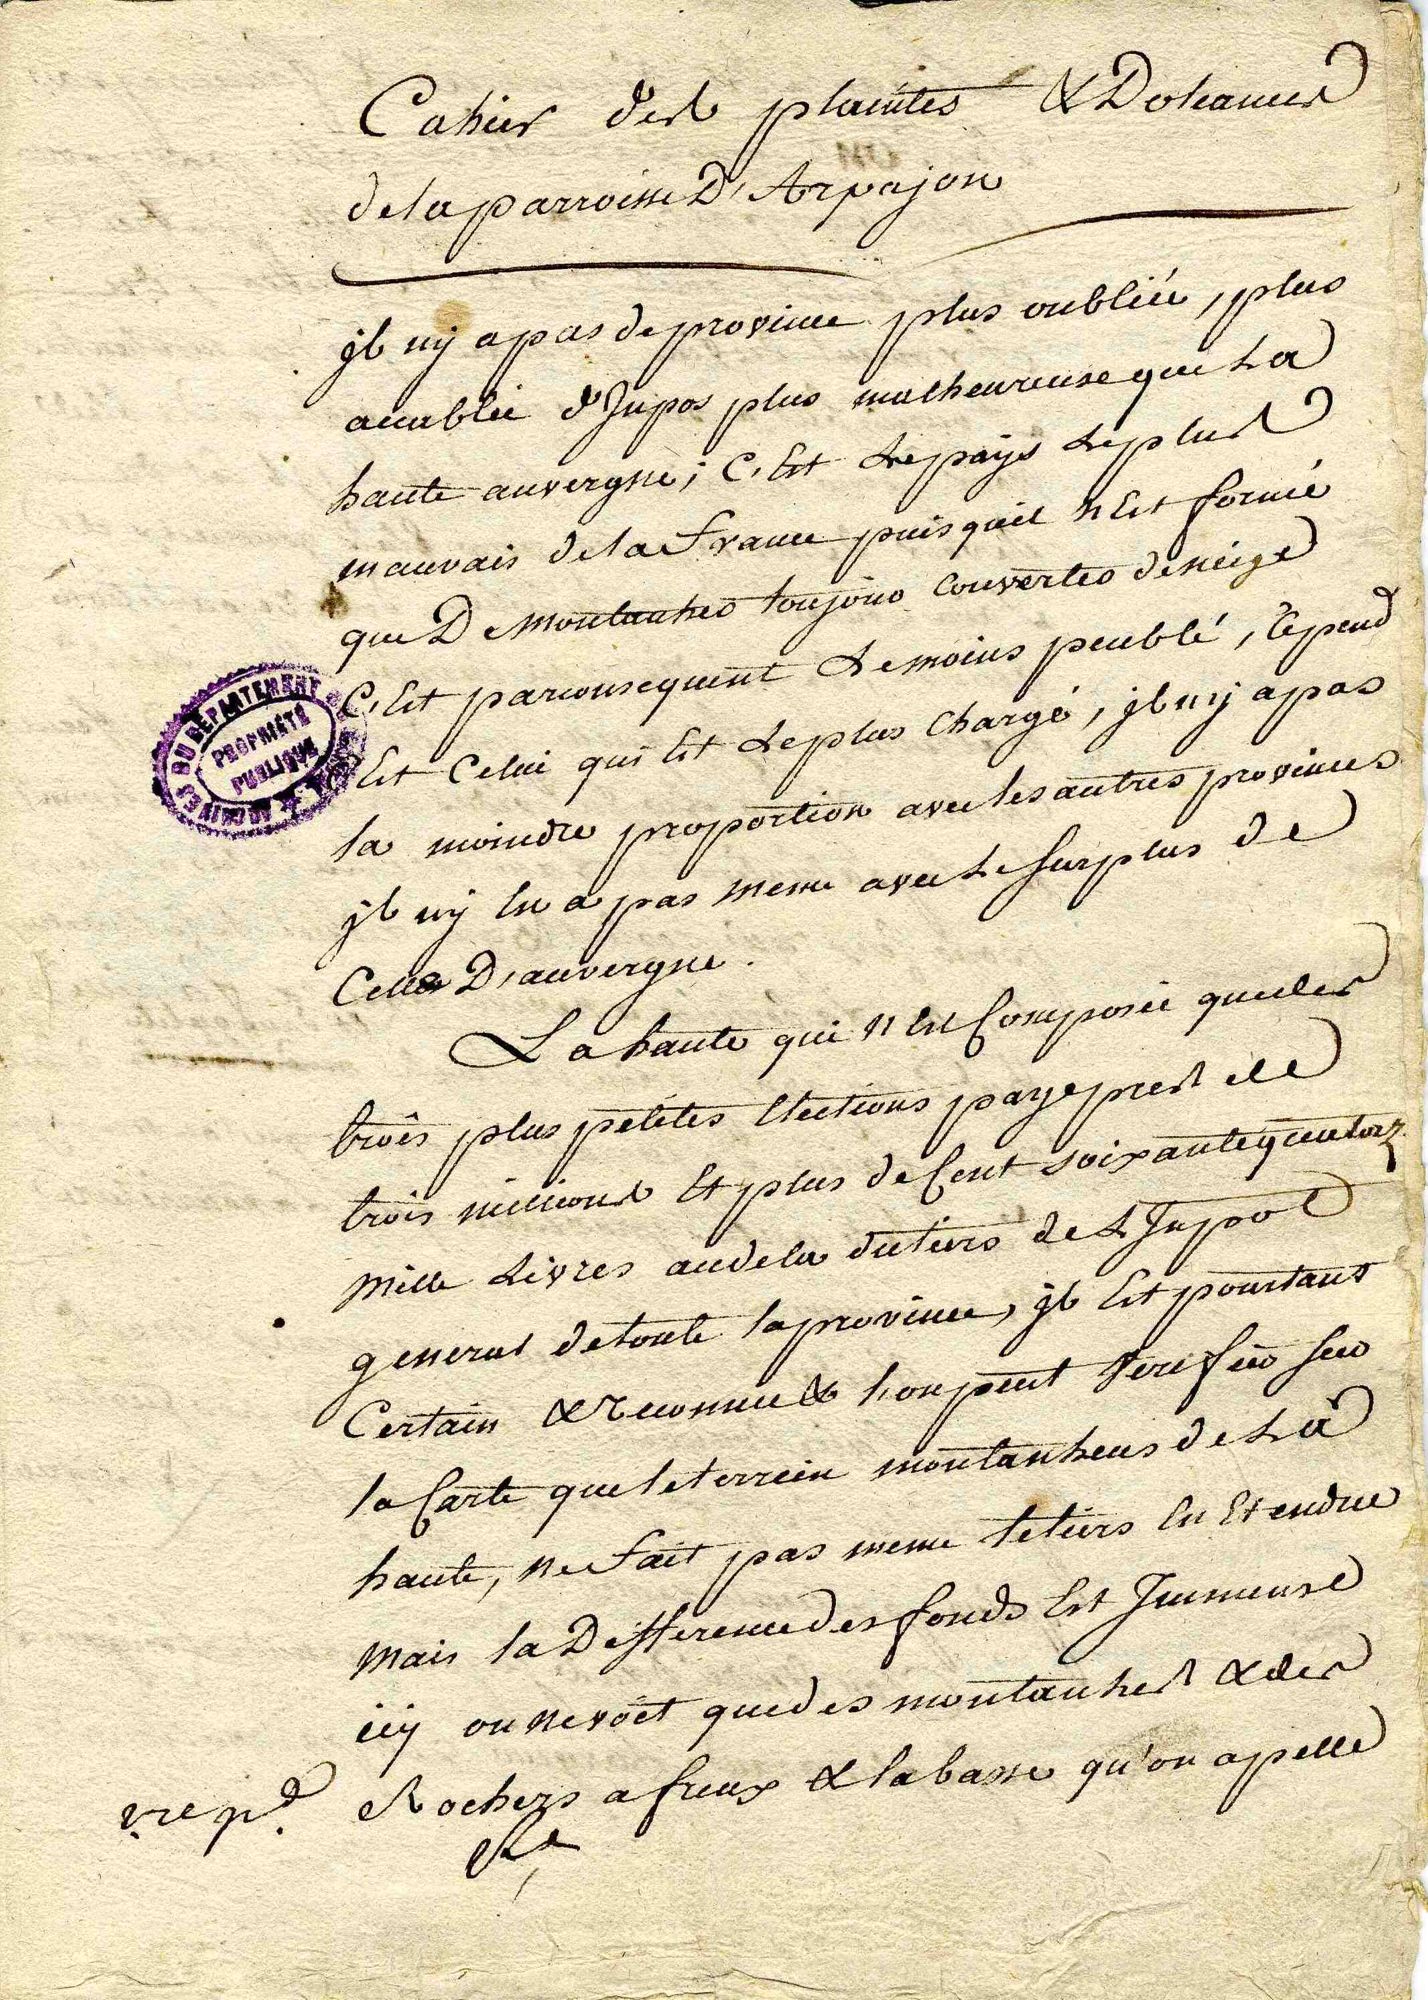 Cahier des plaintes & Doleances
de la parroisse D'Arpajon
jl ny a pas de province plus oubliée, plus
accablée d'Jmpos plus malheureuse que La
haute auvergne; C'Est Le pays Le plus
mauvais de la france puisquil n'Est formé
que De montanhes toujours Couvertes de neige
C'Est par consequent Le moins peublé, Cepend
Est Celui qui Est Le plus Chargé, jl ny a pas
la moindre proportion avec les autres provinces
jl ny En a pas meme avec Le surplus de
Celle D'auvergne.
La haute qui n'Est Composée que des
trois plus petites Elections paye pres de
trois millions Et plus de Cent soixante quatorz
mille Livres au dela du tiers de L'Jmpot
general de toute la province, jl Est pourtant
Certain & reconnu & l'on peut verifier sur
la Carte que le terrein montanheus de La
haute, ne fait pas meme le tiers En Etendue
mais la Difference des fonds Est Jmmense
icy on ne voit que des montanhes & des
Rochers afreux & la basse qu'on apelle
ARCHIVES DU DEPARTEMENT
PROPRIÉTÉ
PUBLIQUE